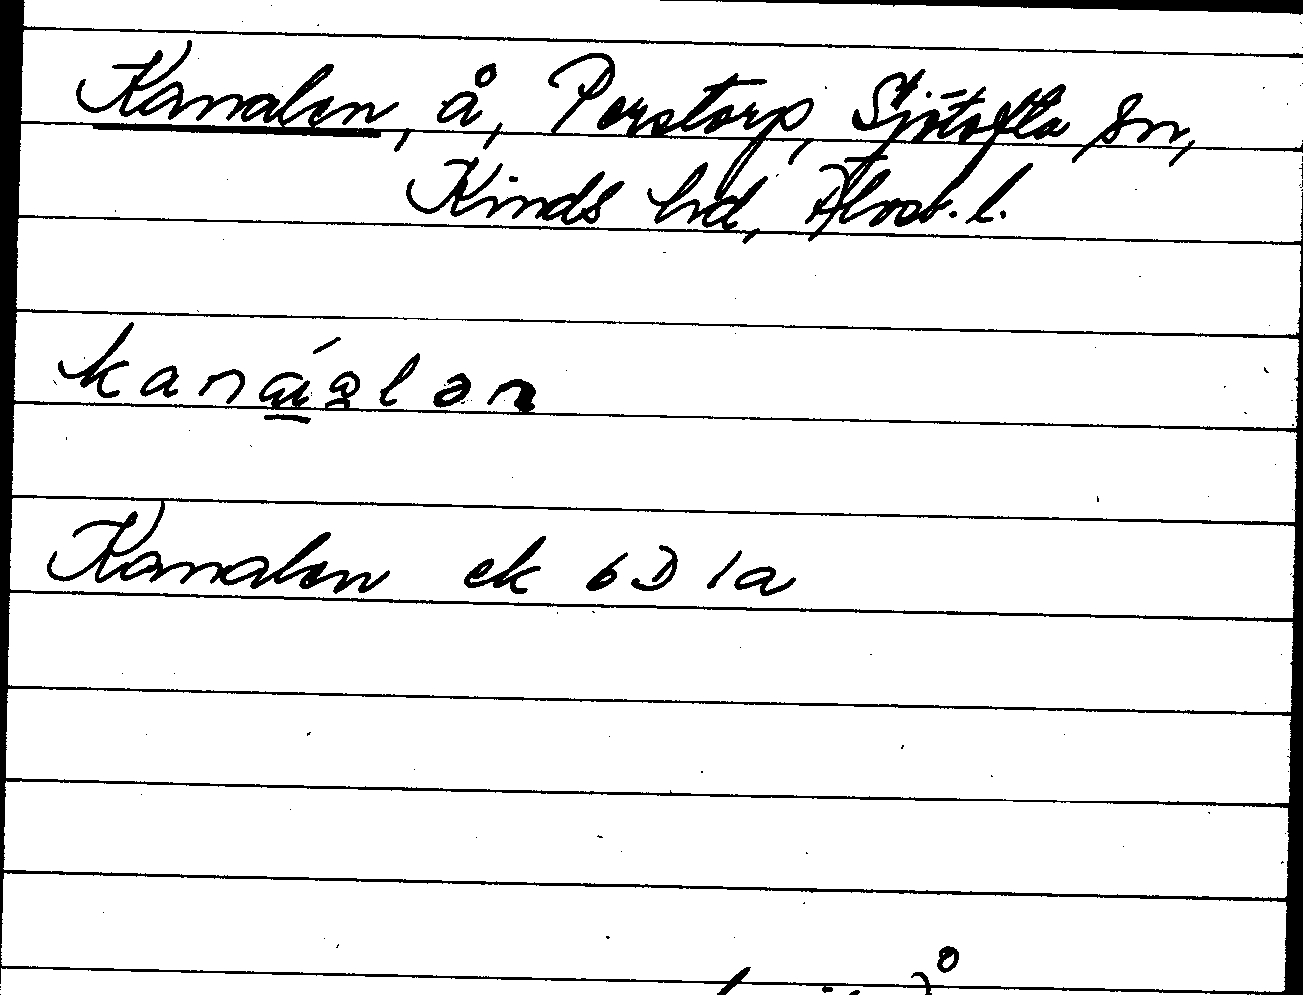 Kanalen, å, Perstorp, Sjötofta sn,
Kinds hd, Älvsb. l.
Kanalen ek 6D 1a